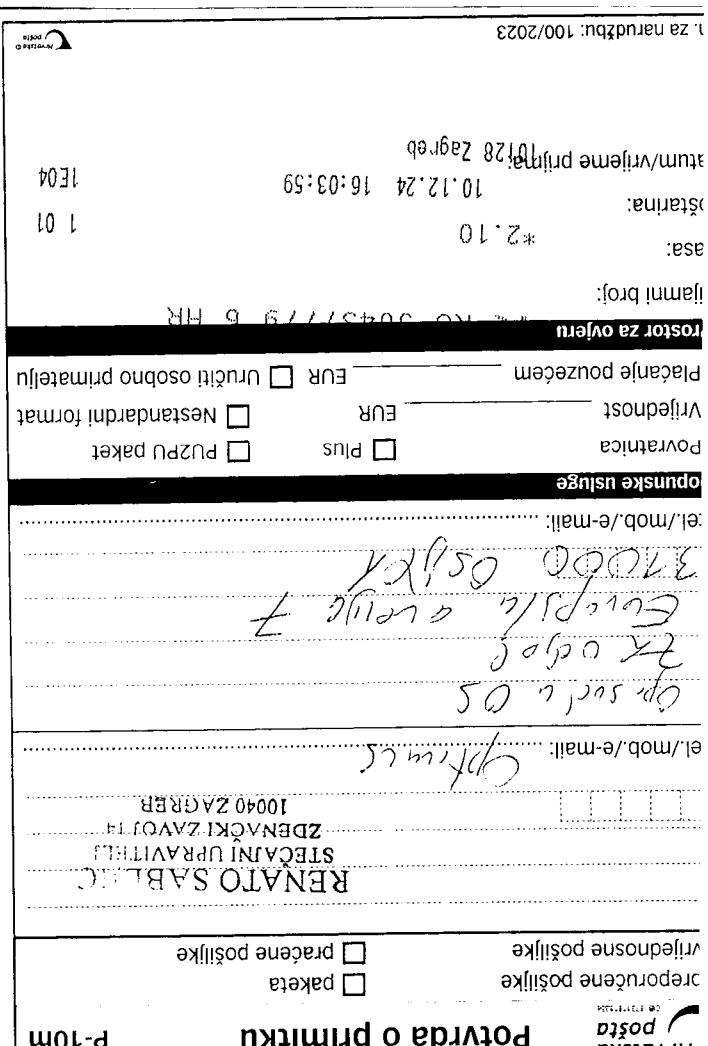 pošta
Potvrda o primitku
P-10m
preporučene pošiljke
paketa
vrijednosne pošiljke
praćene pošiljke
RENATO SABLIĆ
STEČAJNI UPRAVITELJ
ZDENAČKI ZAVOJ 14
10040 ZAGREB
el./mob./e-mail:
Op. sud u OS
ZK odjel
Europska avenija 7
31000 Osijek
el./mob./e-mail:
opunske usluge
Povratnica
Plus
PUZPU paket
Vrijednost
EUR
Nestandardni format
Plaćanje pouzećem
EUR
Uručiti osobno primatelju
Prostor za ovjeru
ijamni broj:
6 HR
asa:
*2.10
1 01
oštarina:
10.12.24 16:03:59
1E04
atum/vrijeme prijma:
10128 Zagreb
. za narudžbu: 100/2023
Hrvatska
pošta